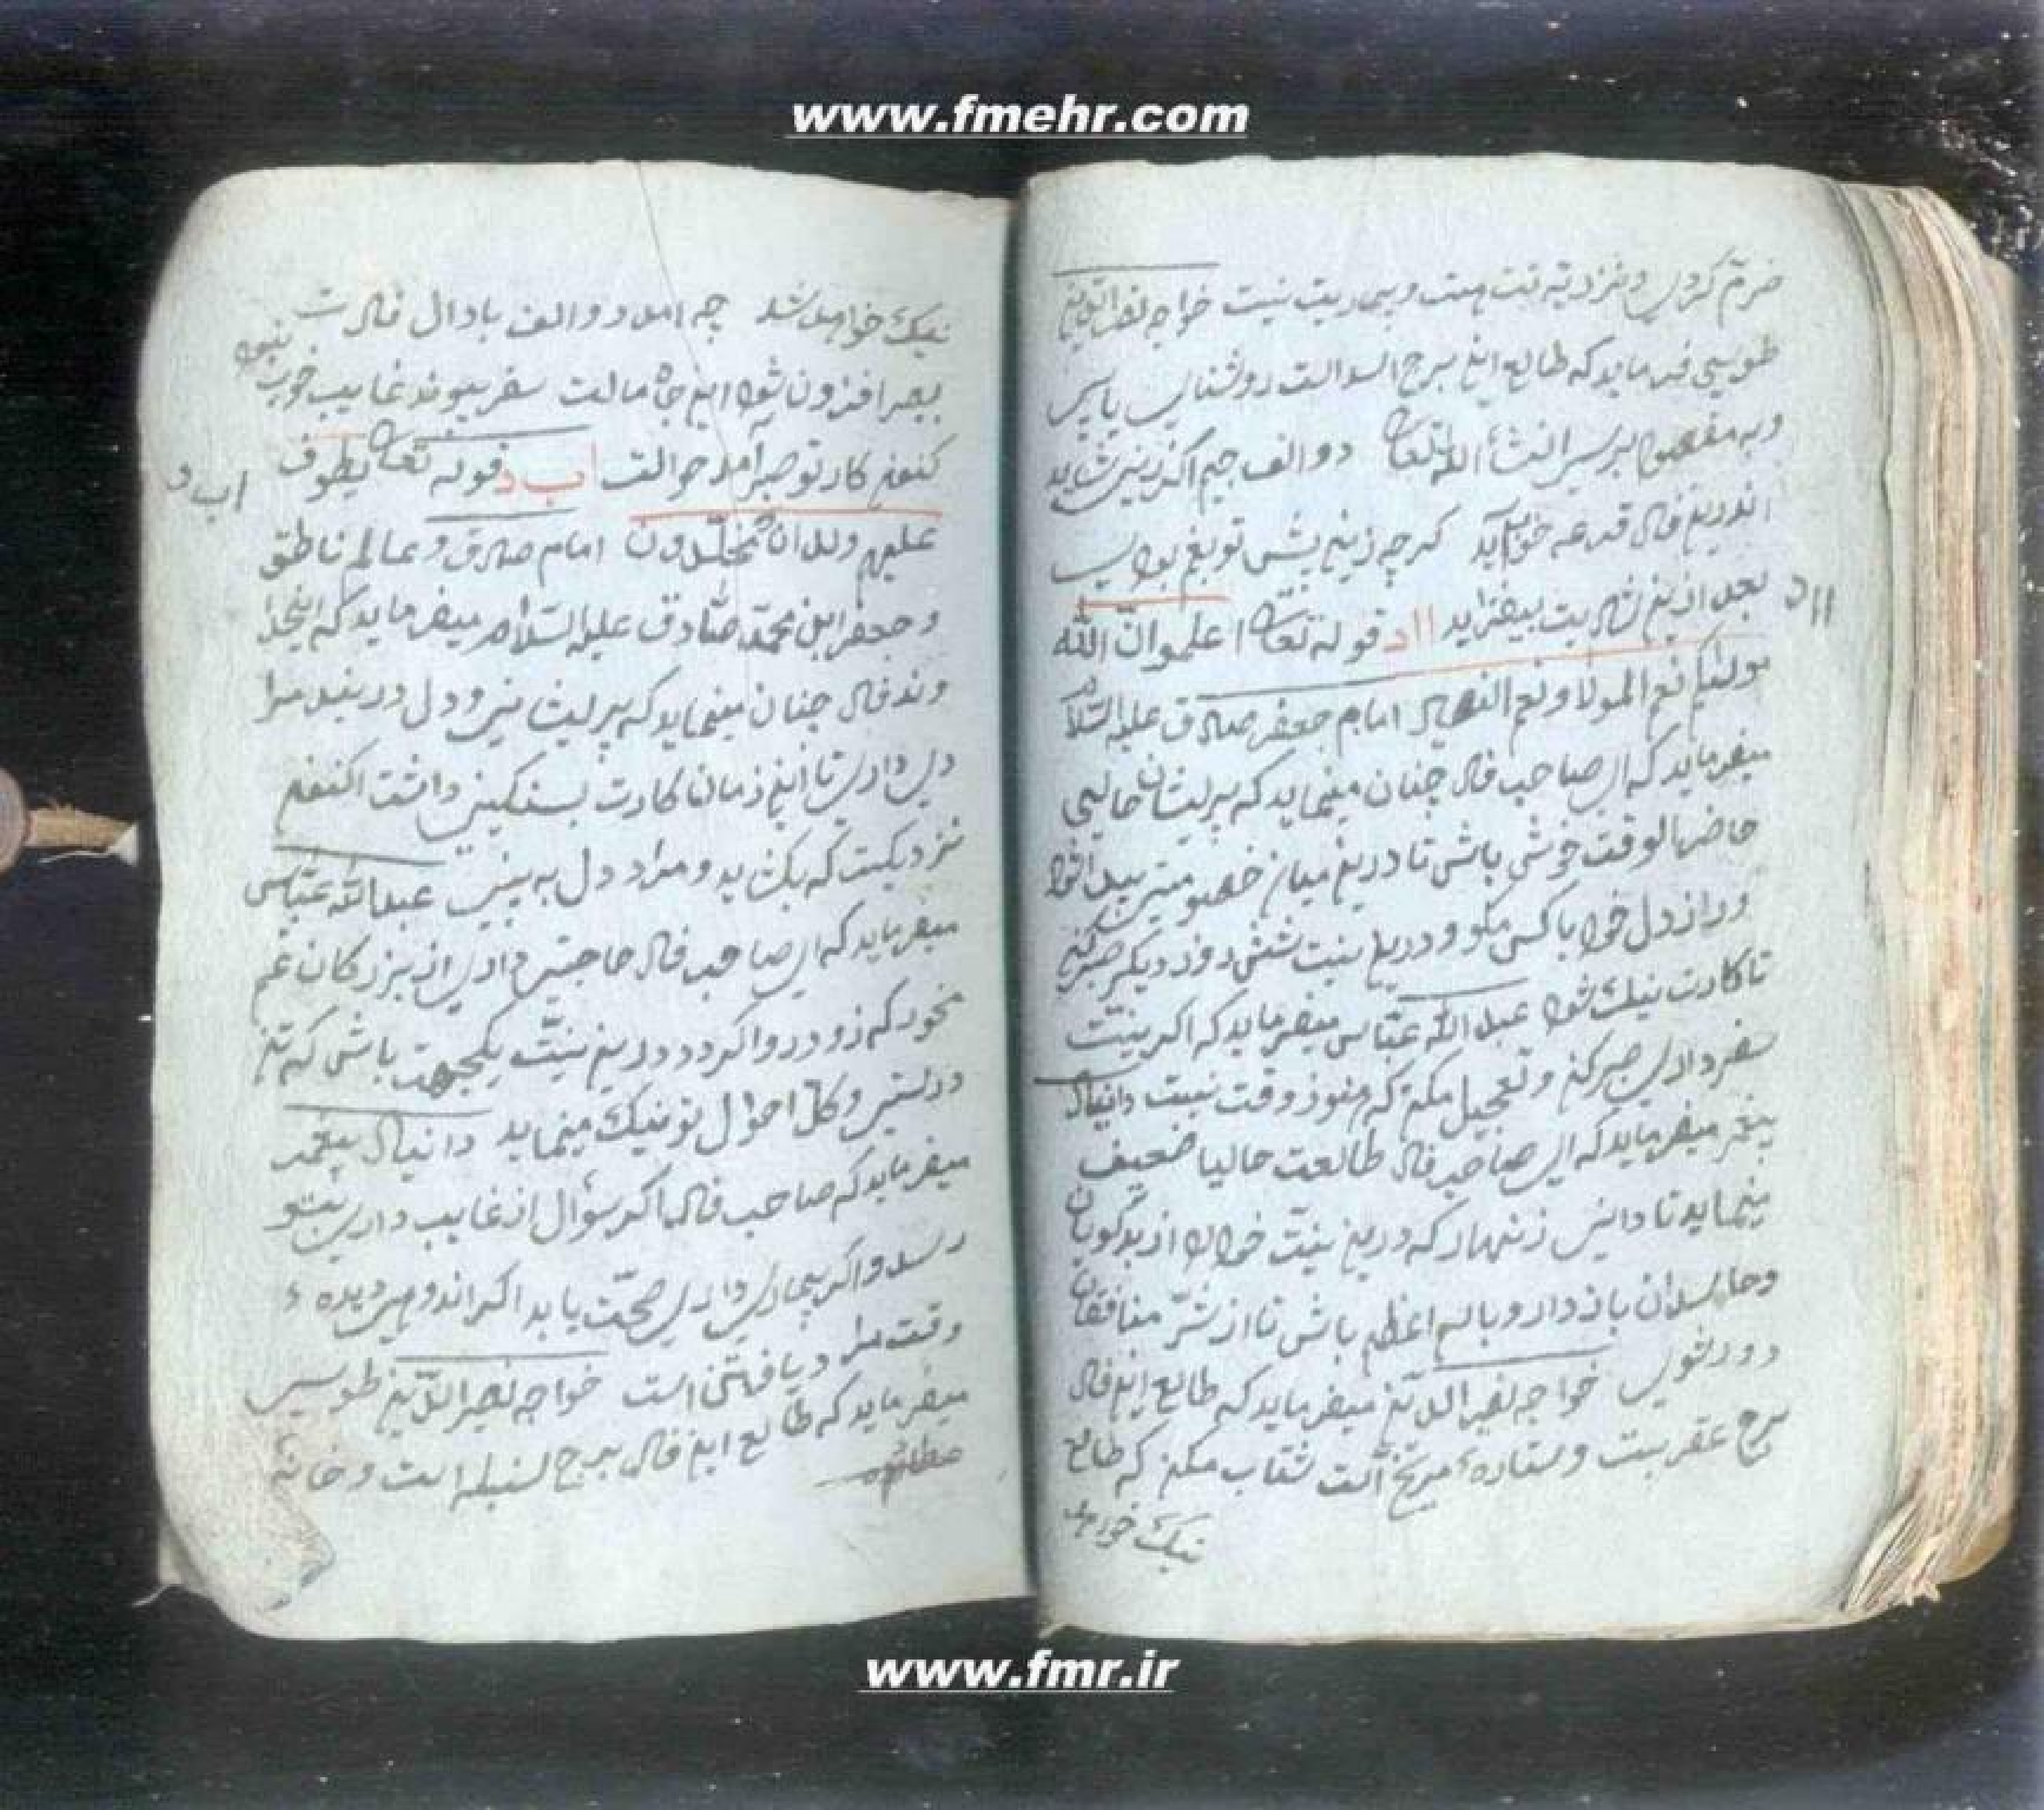 www.fmehr.com
خرم کردی و نیست خواجه نصیرالدین
طوسی فرماید که طالع این برج اسد است روشنایی یابی
و به مقصود برسی انشاءالله تعالی دو الف جیم اگر
اندرین فال قرعه خواب آید گرچه زین پیش تو
بعد ازین بیفزاید ااد قوله تعالی اعلموا ان الله
مولیکم نعم المولا و نعم النصیر امام جعفر صادق علیه السلام
میفرماید که ای صاحب فال چنان مینماید که پریشان حالی
حاضر الوقت خوشی باشی تا درین میان خصومتی پیدا شود
و راز دل خود با کسی مگو و درین نیت شش روز دیگر صبر کن
تا کارت نیک شود عبدالله عباس میفرماید که اگر نیت
سفر داری صبر کن و تعجیل مکن که هنوز وقت نیست دانیال
پیغمبر میفرماید که ای صاحب فال طالعت حالیا ضعیف
مینماید تا دانی زنهار که درین نیت خود را از بدگویان
و حاسدان باز دار و با اسم اعظم باش تا از شر منافقان
دور شوی خواجه نصیرالدین میفرماید که طالع این فال
برج عقربست و ستاره مریخ است شتاب مکن که طالع
نیک خواهد
ااد
نیک خواهد شد چه آمد دو الف با دال فالت
افزون شود این جاه مالت سفر پیوند غایب خوب
کنون کار تو صبر آمد حوالت اب د قوله تعالی یطوف
اب د
علیهم ولدان مخلدون امام صادق و عالم ناطق
و جعفر ابن محمد صادق علیه السلام میفرماید که ای
فال چنان مینماید که پریشانی و دل در بند
داری تا این زمان کارت بستگی داشت اکنون
نزدیکست که بگشاید و مراد دل به بینی عبدالله عباس
میفرماید که ای صاحب فال حاجتی داری از بزرگان غم
مخور که زود روا گردد درین نیت یکجهت باشی که تن
درستی و کل احوال تو نیک مینماید دانیال پیغمبر
میفرماید که صاحب فال اگر سؤال از غایب داری بتو
رسد و اگر بیماری داری صحت یابد اگر اندوهی دیده
وقت مراد یافتنی است خواجه نصیرالدین طوسی
میفرماید که طالع این فال برج سنبله است و خانه
عطارد
www.fmr.ir